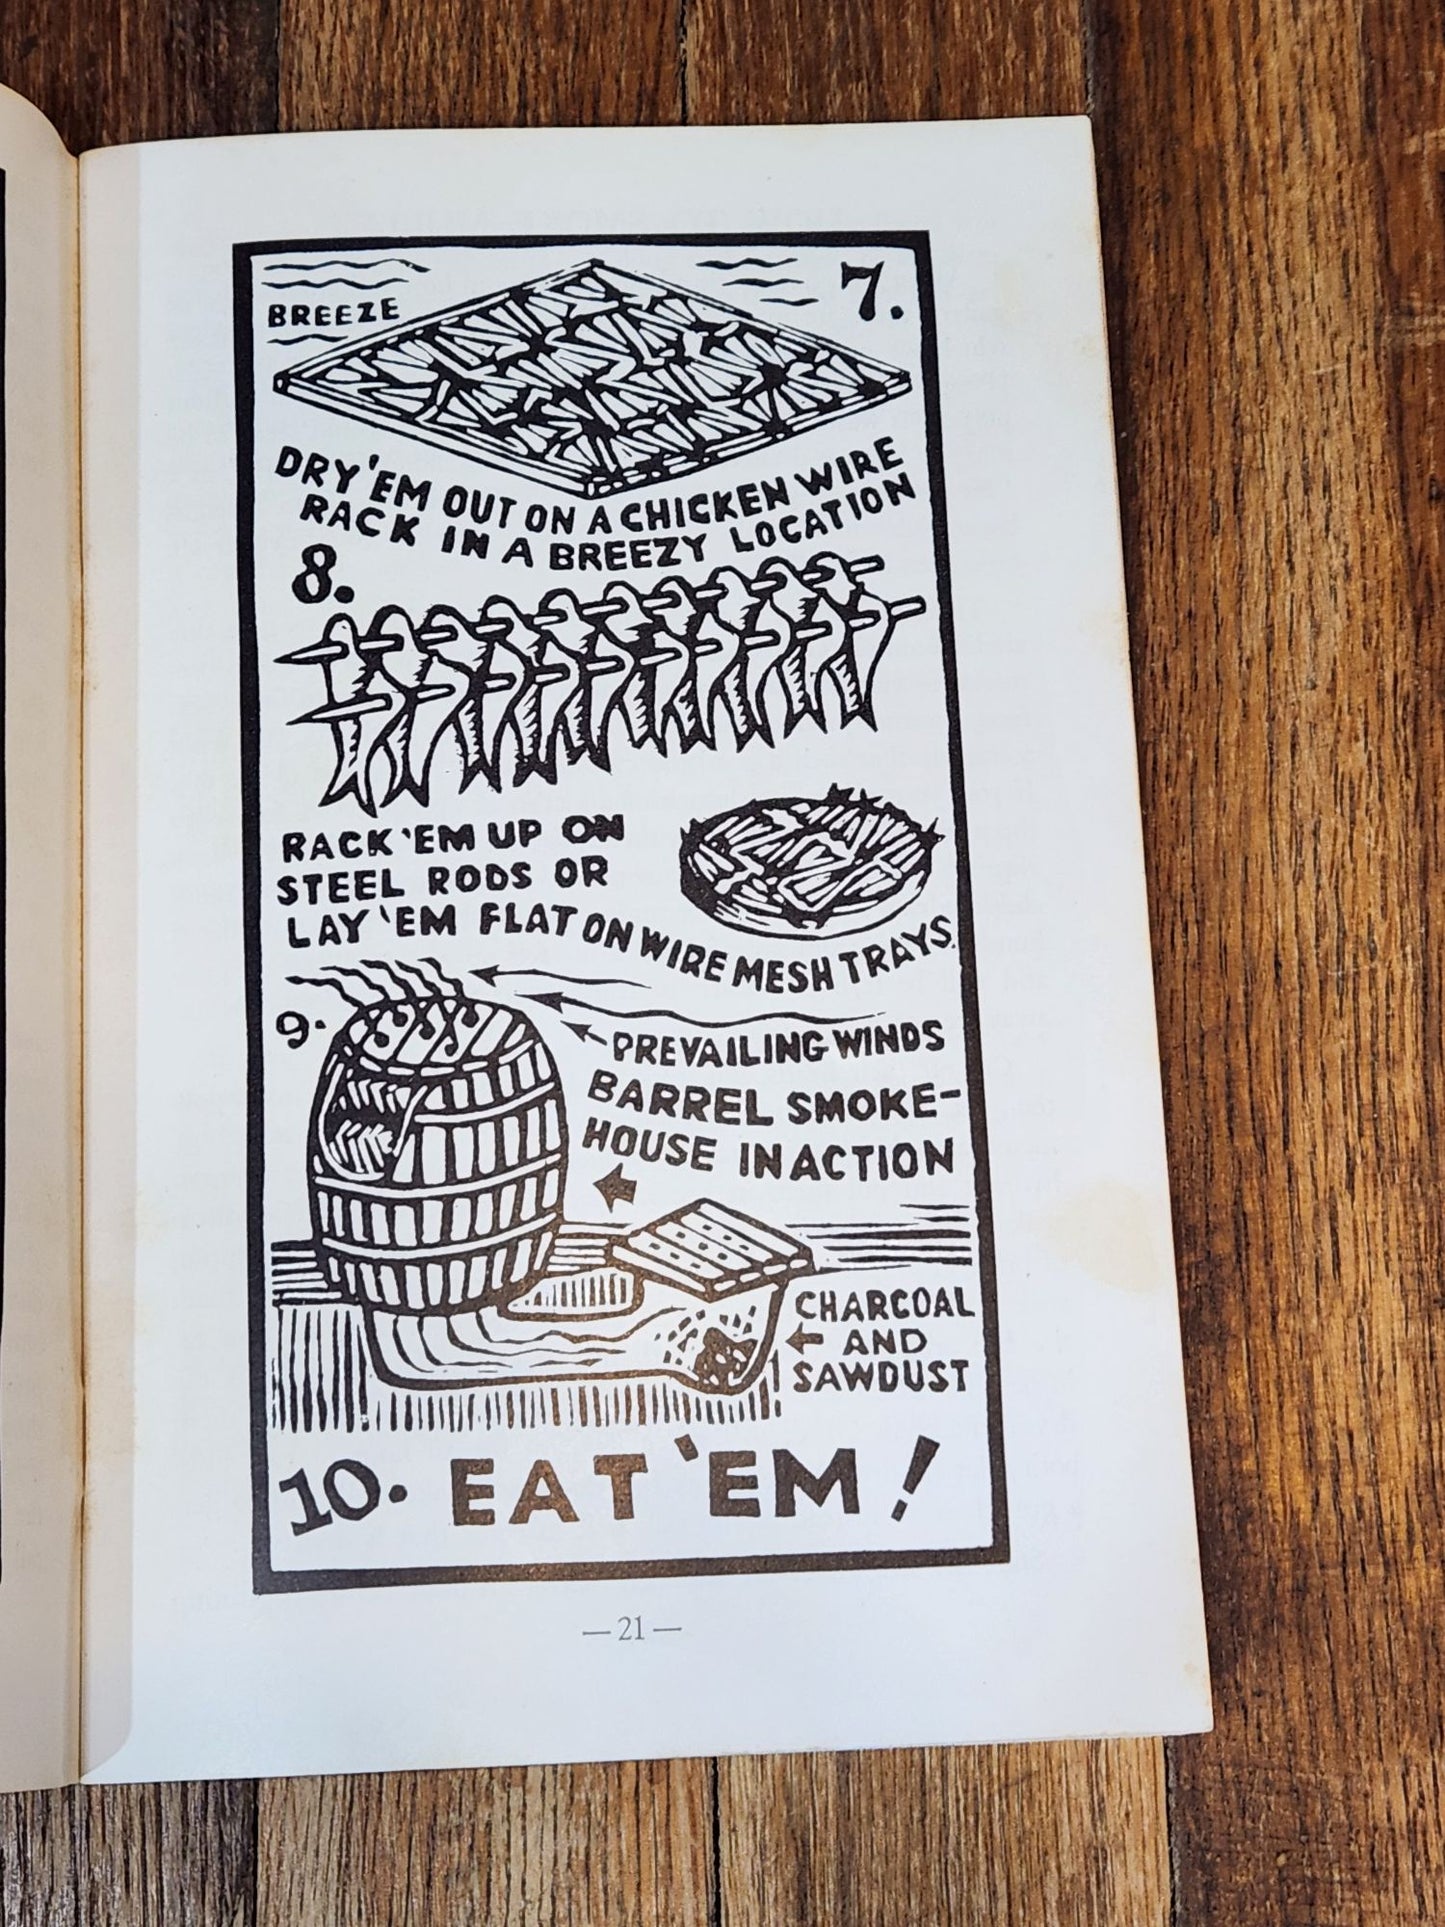 7.
BREEZE
DRY 'EM OUT ON A CHICKEN WIRE
RACK IN A BREEZY LOCATION
8.
RACK 'EM UP ON
STEEL RODS OR
LAY 'EM FLAT ON WIRE MESH TRAYS.
9.
PREVAILING WINDS
BARREL SMOKE-
HOUSE IN ACTION
CHARCOAL
AND
SAWDUST
10. EAT 'EM!
— 21 —